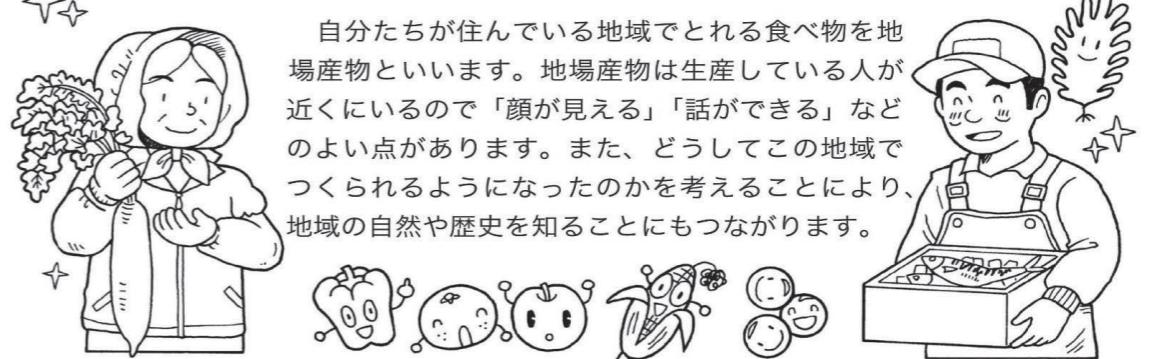 自分たちが住んでいる地域でとれる食べ物を地
場産物といいます。地場産物は生産している人が
近くにいるので「顔が見える」「話ができる」など
のよい点があります。また、どうしてこの地域で
つくられるようになったのかを考えることにより、
地域の自然や歴史を知ることにもつながります。